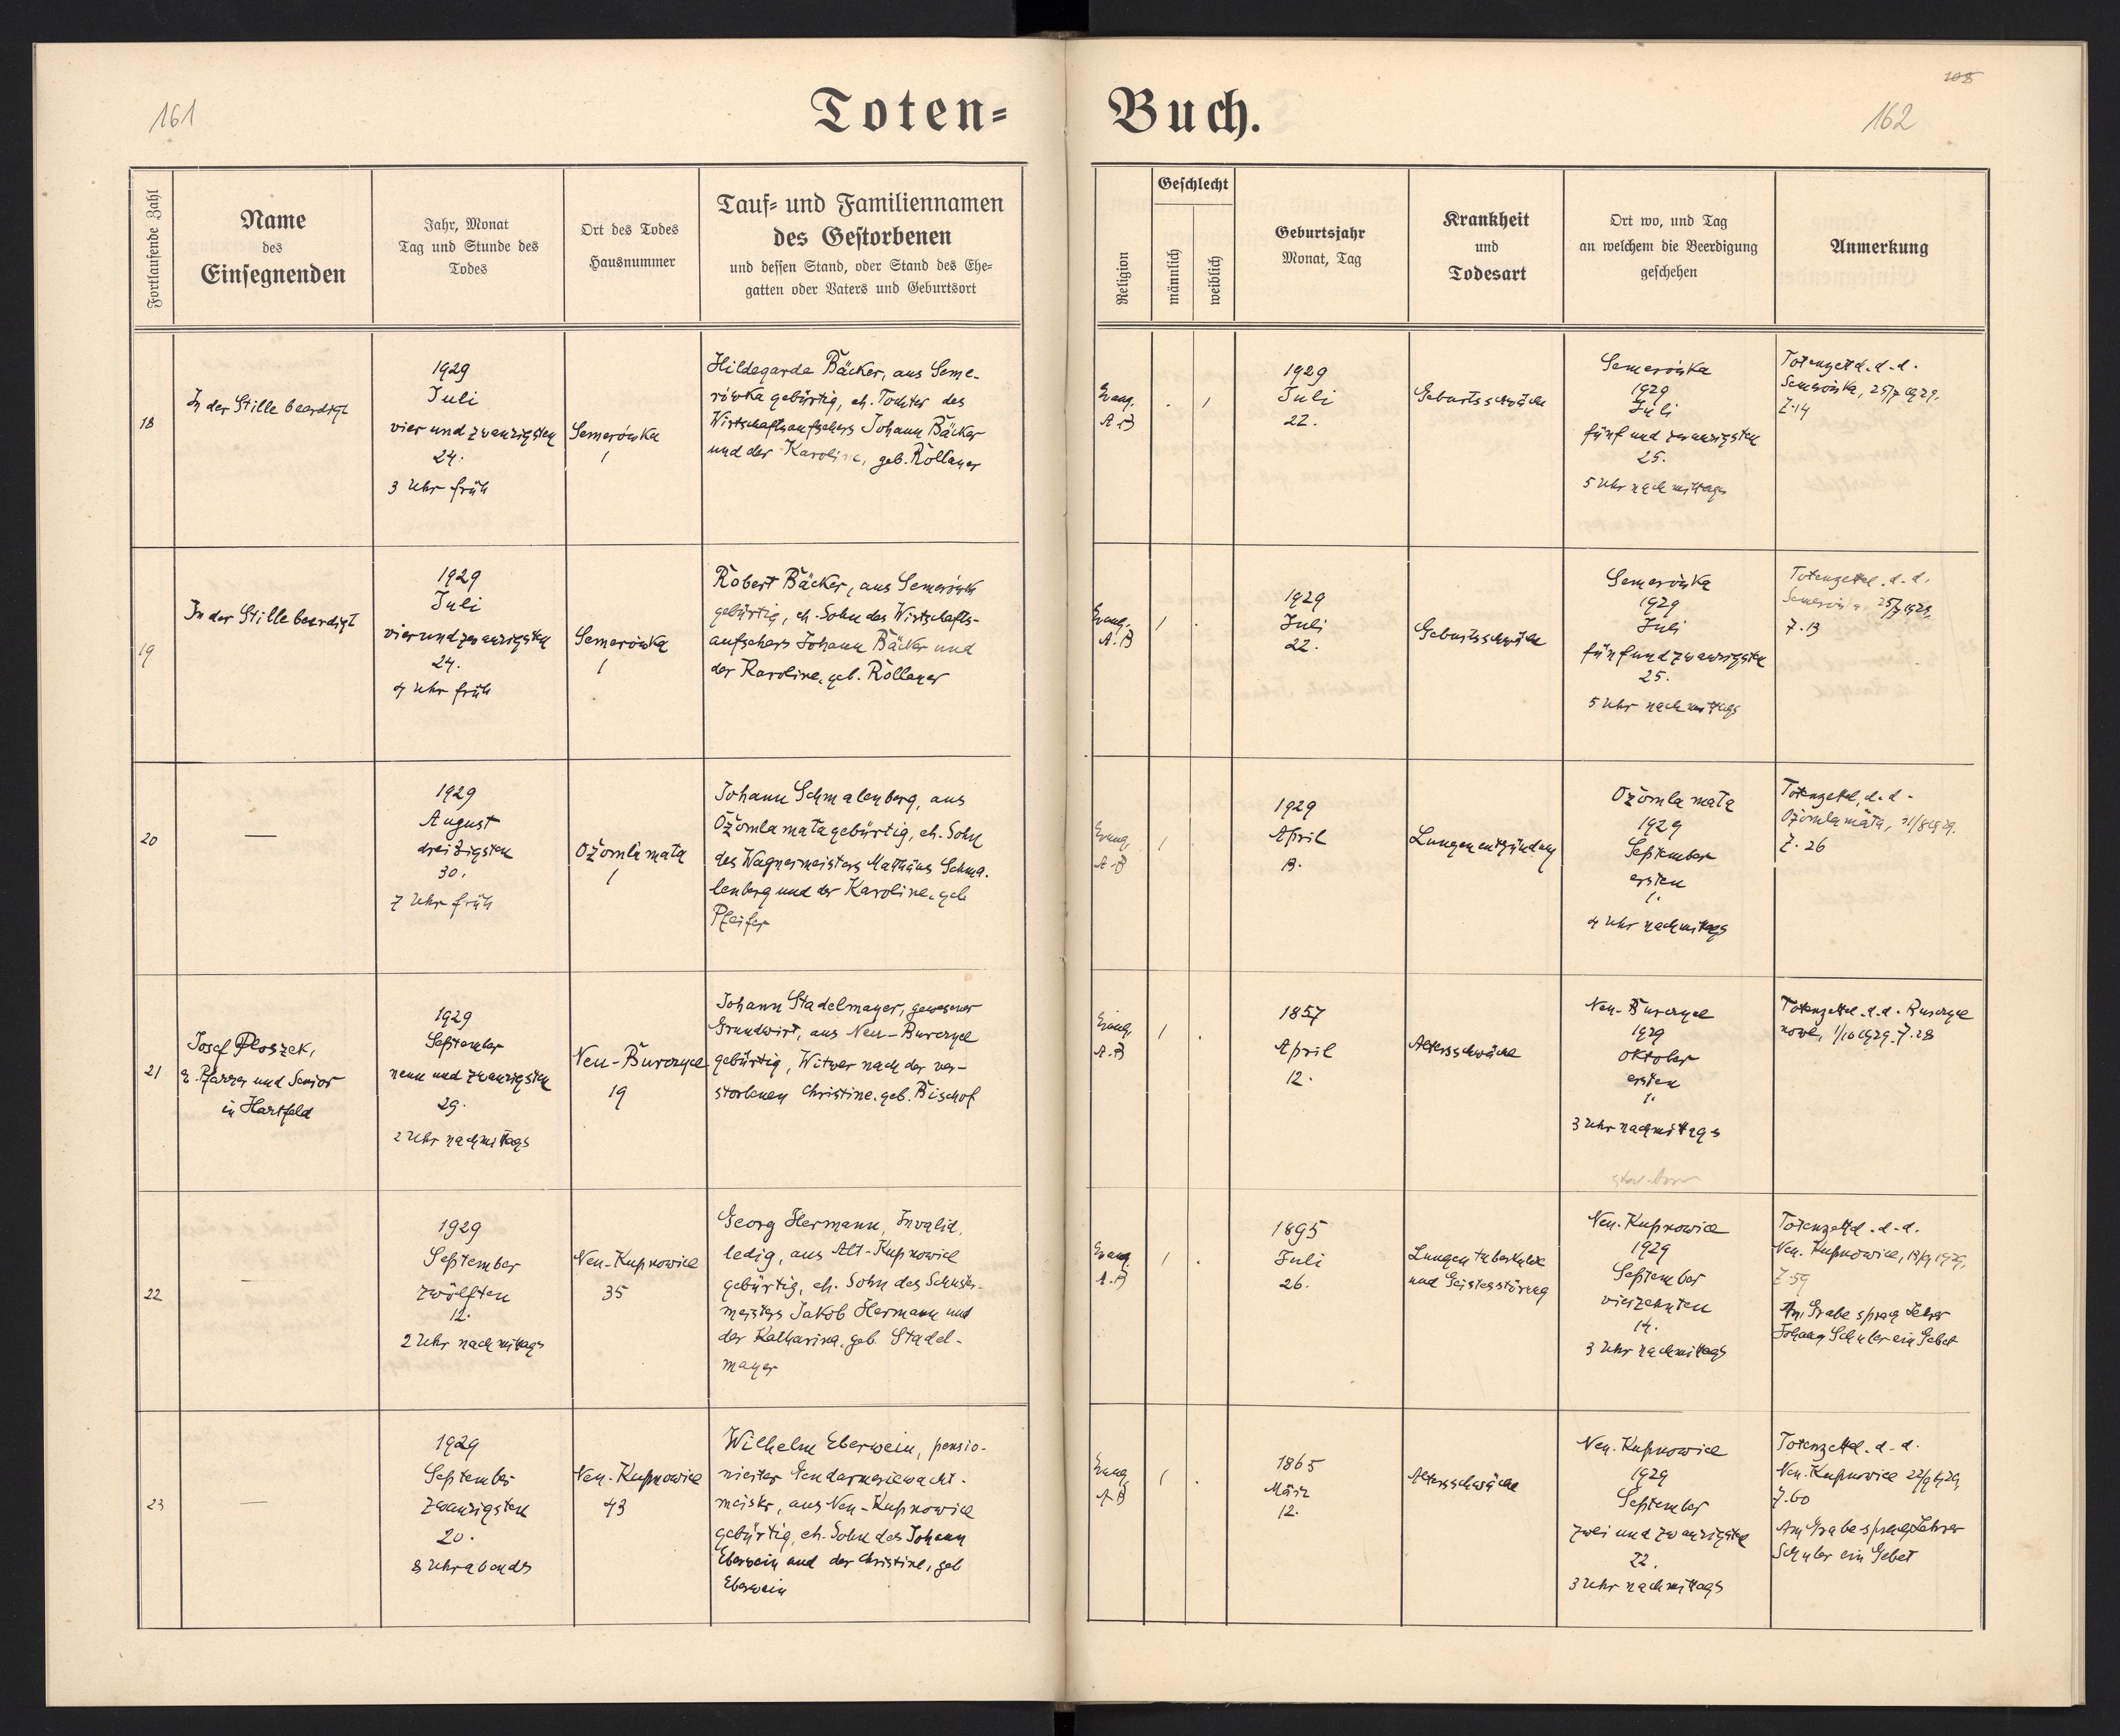 161
Toten=
Buch.
108
162
Fortlaufende Zahl
Name
des
Einsegnenden
Jahr, Monat
Tag und Stunde des
Todes
Ort des Todes
Hausnummer
Tauf= und Familiennamen
des Gestorbenen
und dessen Stand, oder Stand des Ehe=
gatten oder Vaters und Geburtsort
Religion
Geschlecht
männlich
weiblich
Geburtsjahr
Monat, Tag
Krankheit
und
Todesart
Ort wo, und Tag
an welchem die Beerdigung
geschehen
Anmerkung
18
In der Stille beerdigt
1929
Juli
vier und zwanzigsten
24.
3 Uhr früh
Semerówka
1
Hildegarde Bäcker, aus Seme-
rówka gebürtig, eh. Tochter des
Wirtschaftsaufsehers Johann Bäcker
und der Karoline, geb. Röllauer
Evang.
A.B
. 1
1929
Juli
22.
Geburtsschwäche
Semerówka
1929
Juli
fünf und zwanzigsten
25.
5 Uhr nachmittags
Totenzettel d. d.
Semerówka, 25/7 1929.
Z.14
19
In der Stille beerdigt
1929
Juli
vier und zwanzigsten
24.
4 Uhr früh
Semerówka
1
Robert Bäcker, aus Semerówk
gebürtig, eh. Sohn des Wirtschafts-
aufsehers Johann Bäcker und
der Karoline, geb. Röllauer
Evang.
A.B
1 .
1929
Juli
22.
Geburtsschwäche
Semerówka
1929
Juli
fünf und zwanzigsten
25.
5 Uhr nachmittags
Totenzettel d. d.
Semerówka, 25/7 1929,
Z.13
20
—
1929
August
dreißigsten
30.
7 Uhr früh
Ożomla mała
1
Johann Schmalenberg, aus
Ożomla mała gebürtig, eh. Sohn
des Wagnermeisters Mathäus Schma-
lenberg und der Karoline, geb.
Pfeifer
Evang.
A.B
1 .
1929
April
13.
Lungenentzündung
Ożomla mała
1929
September
ersten
1.
4 Uhr nachmittags
Totenzettel, d. d.
Ożomla mała, 31/8 1929.
Z. 26
21
Josef Ploszek,
e. Pfarrer und Senior
in Hartfeld
1929
September
neun und zwanzigsten
29.
2 Uhr nachmittags
Neu-Burczyce
19
Johann Stadelmayer, gewesener
Grundwirt, aus Neu-Burczyce
gebürtig, Witwer nach der ver-
storbenen Christine, geb. Bischof
Evang.
A.B
1 .
1857
April
12.
Altersschwäche
Neu-Burczyce
1929
Oktober
ersten
1.
3 Uhr nachmittags
Totenzettel d. d. Burczyce
nowe, 1/10 1929. Z.28
22
—
1929
September
zwölften
12.
2 Uhr nachmittags
Neu-Kupnowice
35
Georg Hermann, Invalid,
ledig, aus Alt-Kupnowice
gebürtig, eh. Sohn des Schuster-
meisters Jakob Hermann und
der Katharina, geb. Stadel-
mayer
Evang.
A.B
1 .
1895
Juli
26.
Lungentuberkulose
und Geistesstörung
Neu-Kupnowice
1929
September
vierzehnten
14.
3 Uhr nachmittags
Totenzettel d. d.
Neu-Kupnowice, 13/9 1929,
Z. 59
Am Grabe sprach Lehrer
Johann Schuler ein Gebet
23
—
1929
September
zwanzigsten
20.
8 Uhr abends
Neu-Kupnowice
43
Wilhelm Eberwein, pensio-
nierter Gendarmeriewacht-
meister, aus Neu-Kupnowice
gebürtig, eh. Sohn des Johann
Eberwein und der Christine, geb
Eberwein
Evang.
A.B
1 .
1865
März
12.
Altersschwäche
Neu-Kupnowice
1929
September
zwei und zwanzigsten
22.
3 Uhr nachmittags
Totenzettel d. d.
Neu-Kupnowice 22/9 1929,
Z.60
Am Grabe sprach Lehrer
Schuler ein Gebet